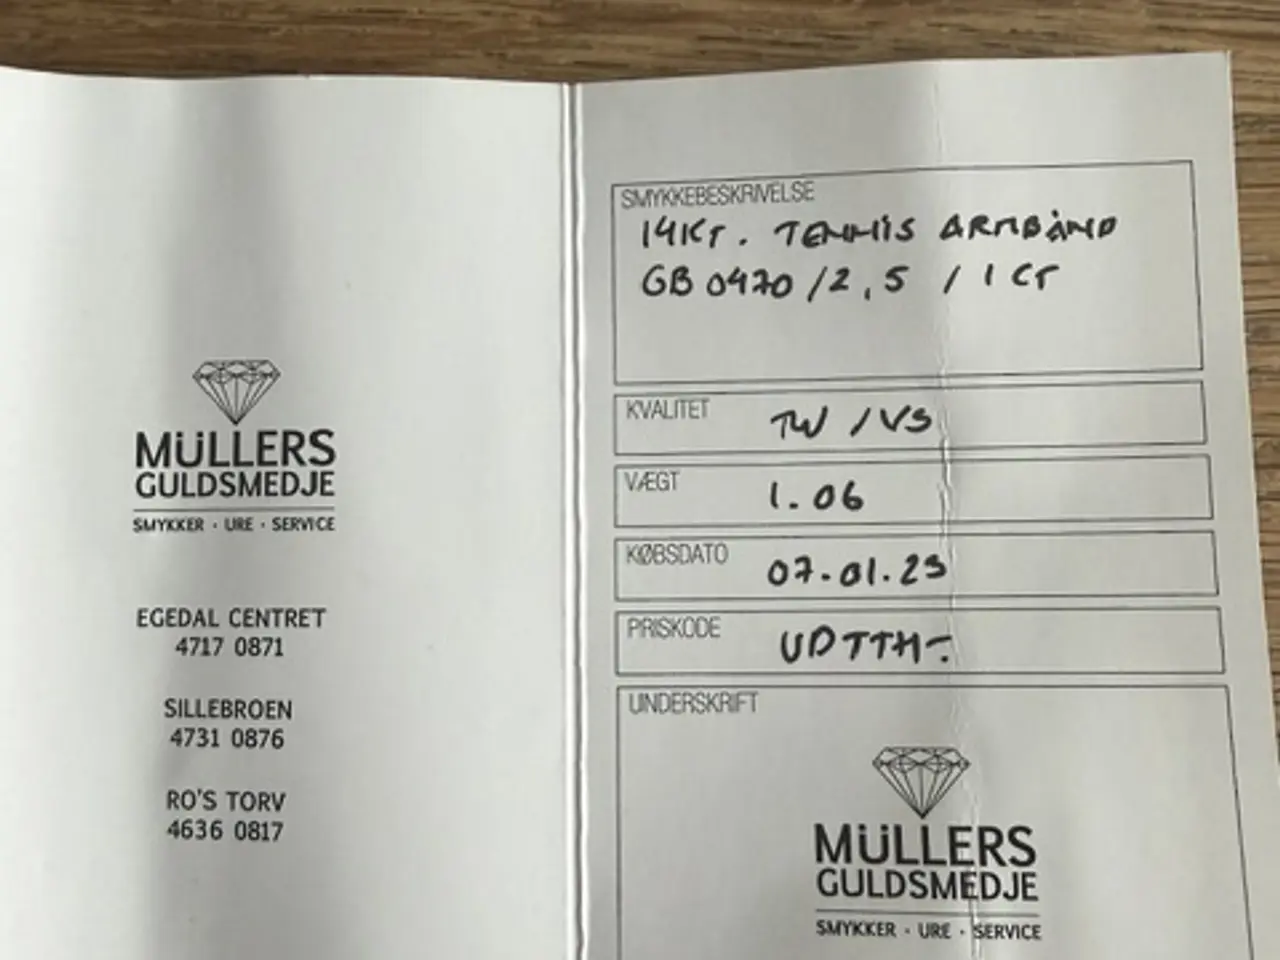 MÜLLERS
GULDSMEDJE
SMYKKER · URE · SERVICE
EGEDAL CENTRET
4717 0871
SILLEBROEN
4731 0876
RO'S TORV
4636 0817
SMYKKEBESKRIVELSE
14KT. TENNIS ARMBÅND
GB 0470 / 2,5 / 1 CT
KVALITET TW / VS
VÆGT 1.06
KØBSDATO 07-01.23
PRISKODE UDTTH-
UNDERSKRIFT
MÜLLERS
GULDSMEDJE
SMYKKER · URE · SERVICE